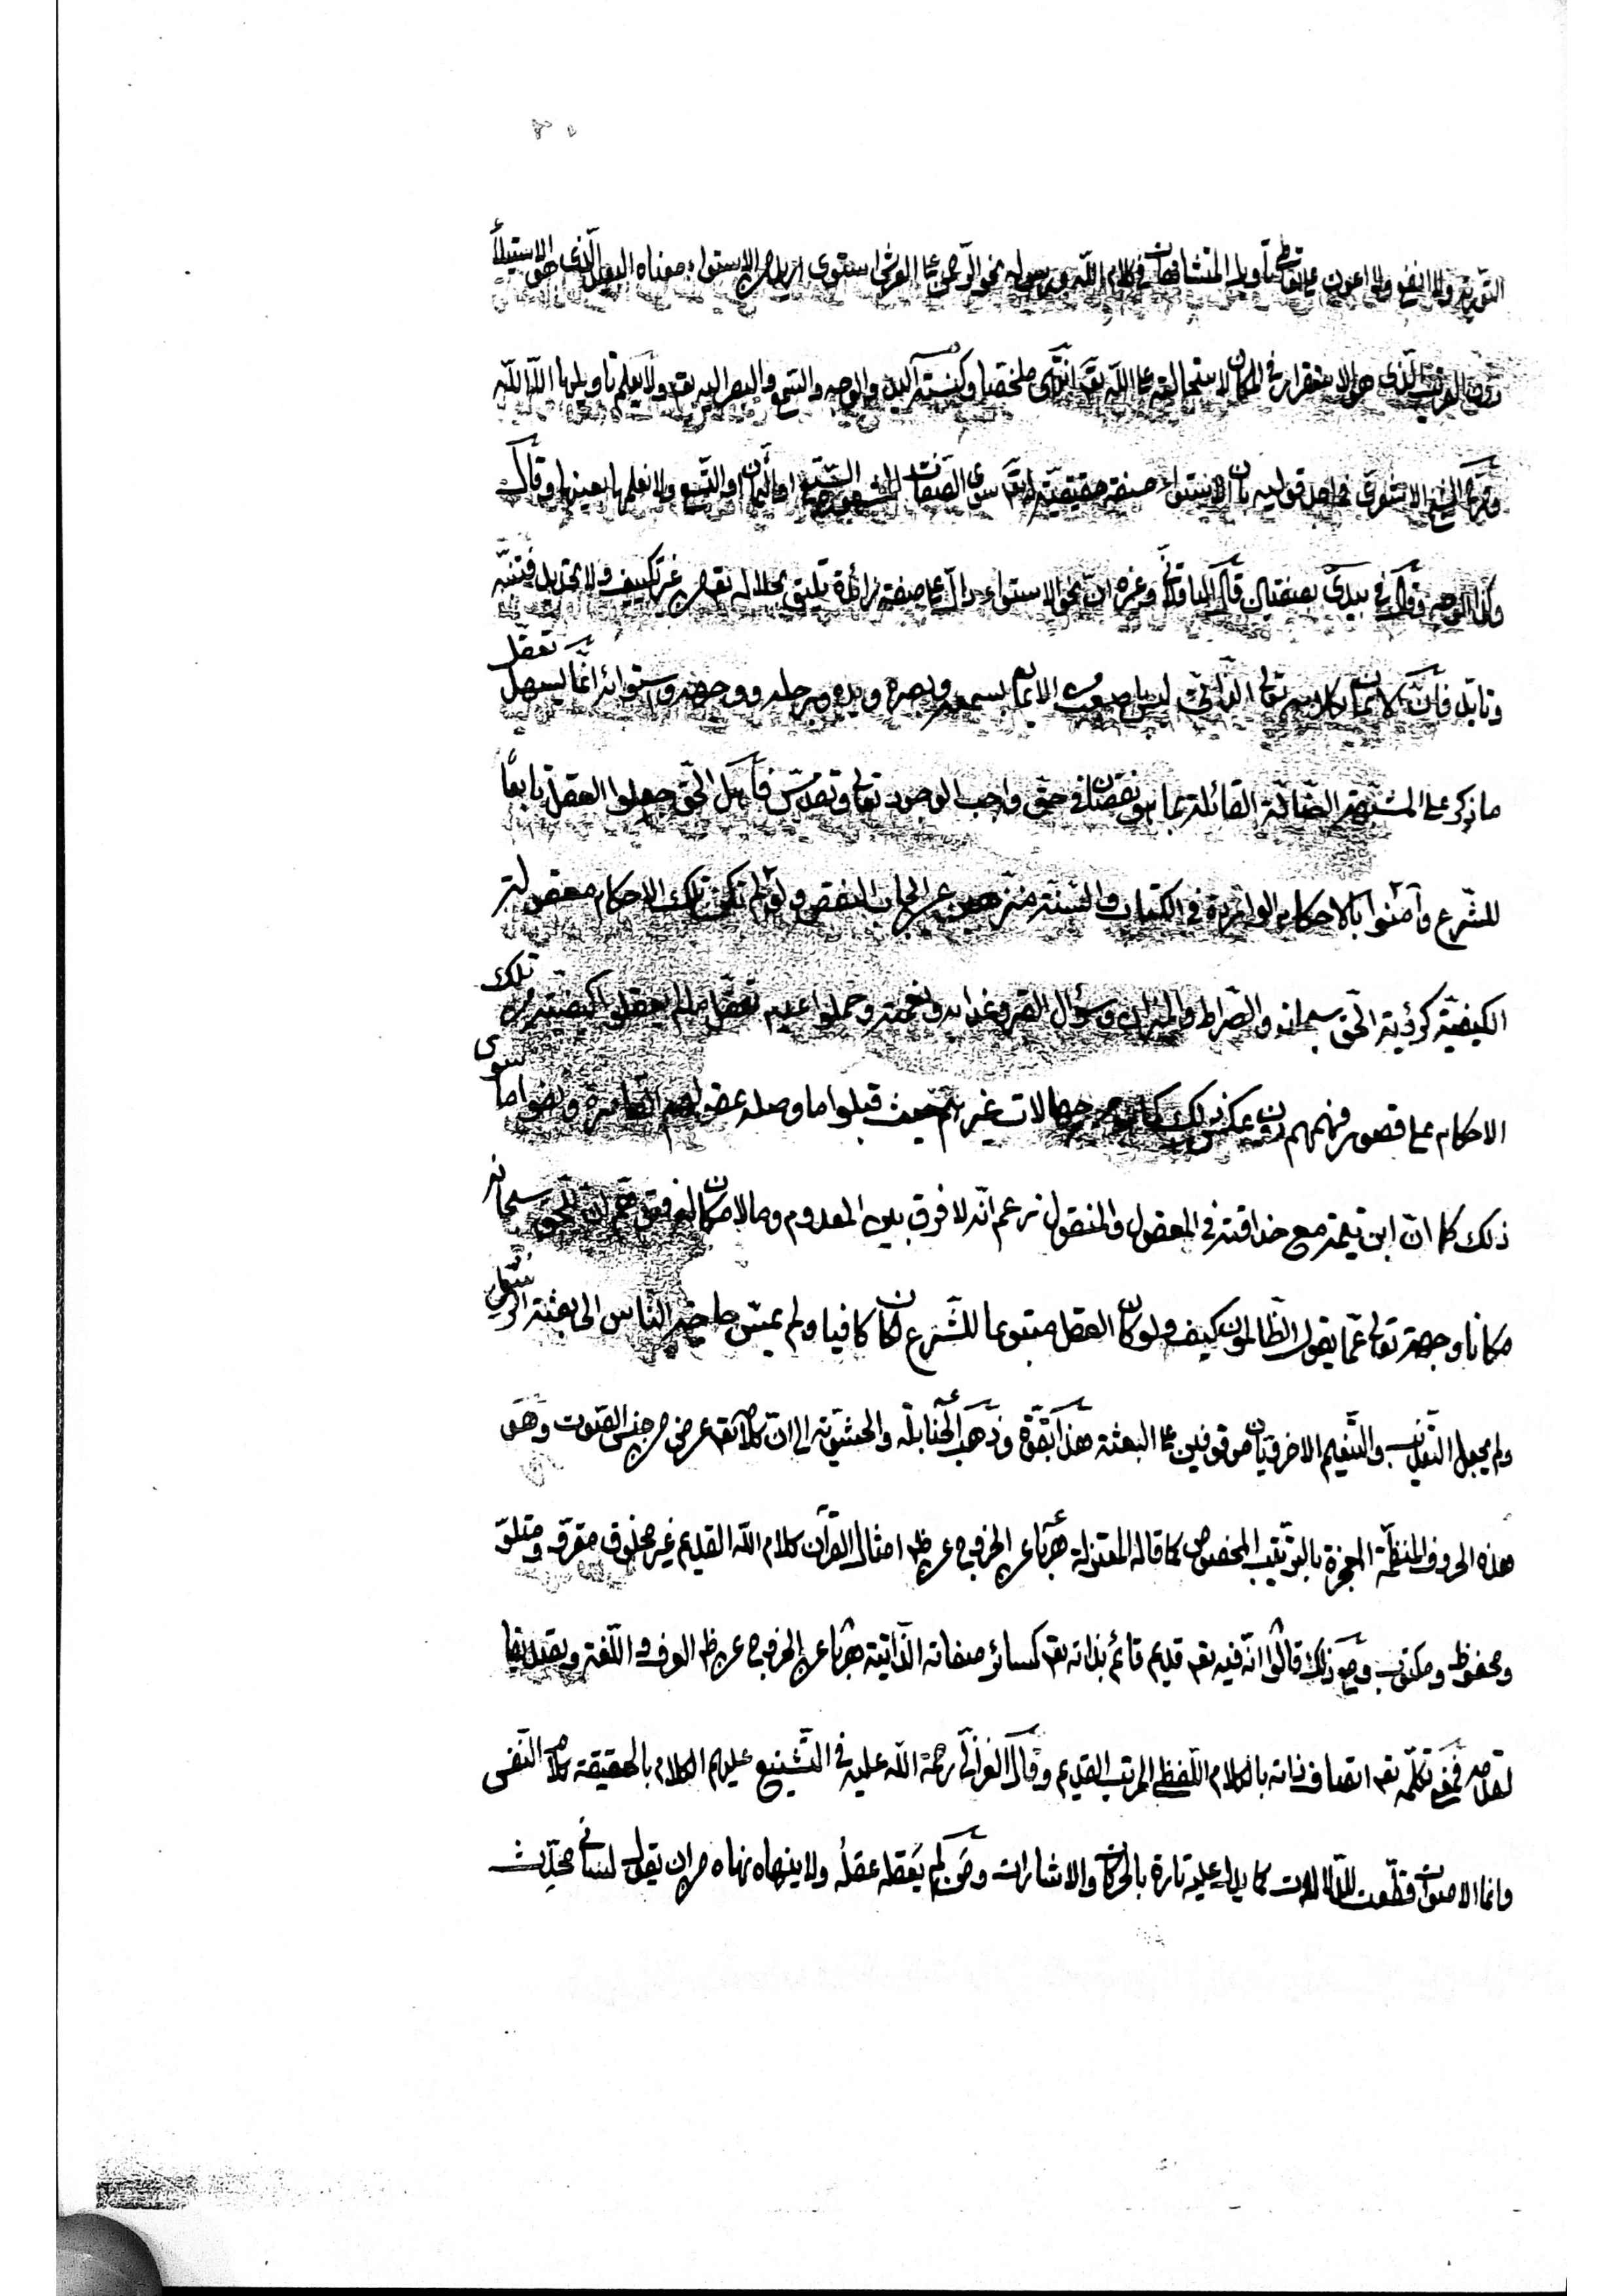 التورية ولا انفع ولا اعون على تأويل المتشابهات في كلام الله ورسوله نحو الرّحمن على العرش استوى اريد من الاستواء معناه البعيد الّذى هو الاستيلاء
دون القريب الّذى هو الاستقرار في المكان لاستحالته على الله تع انتهى ملخصا وكنسبته اليد والوجه والسّمع والبصر اليه تع ولا يعلم تأويلها الّا الله
الشيخ الاشعرى في احد قوليه بان الاستواء صفة حقيقيّة له تع سوى الصّفات السّبع او الثمان او التّسع ولا نعلمها بعينها وقال
وكذا الوجه وقال في بيدىّ بصفتيان قال الباقلانى وغيره انّ نحو الاستواء دالّ على صفة زائدة تليق بجلاله تع من غير تكييف ولا تحديد فتنبّه
وتأمّل فانّ كلامه تعالى الذّاتىّ ليس باصعب من الايمان بسمعه وبصره ويده ورجله ووجهه واستوائه انّما يسهل تعقّل
ما ذكر على المشبّهة الضّالّة القائلة بما هو نقصان في حقّ واجب الوجود تعالى وتقدّس فأهل الحقّ جعلوا العقل تابعًا
للشّرع وآمنوا بالاحكام الواردة في الكتاب والسّنّة منزّهين عن ايجاب النقص ولو لم تكن تلك الاحكام معقولة
الكيفيّة كرؤية الحقّ سبحانه والصّراط والميزان وسؤال القبر وعذابه ونعمته وحملوا عدم تعقّل العقل لكيفيّة تلك
الاحكام على قصور فهمهم دون عكس ذلك كما هو من جهالات غيرهم حيث قبلوا ما وصله عقولهم القاصرة ونفوا ما سوى
ذلك كما انّ ابن تيمية مع حذاقته في المعقول والمنقول زعم انّه لا فرق بين المعدوم وما لا مكان له فتوهّم انّ للحقّ سبحانه
مكانا وجهة تعالى عمّا يقول الظّالمون كيف ولو كان العقل متبوعا للشّرع لكان كافيا ولم يمسّ حاجة النّاس الى بعثة الرّسل
ولم يجعل التعذيب والتّنعيم الاخرويّان موقوفين على البعثة هذا بقوّة وذهب الحنابلة والحشويّة الى انّ كلامه تع عرض من جنس الصّوت وهو
هذه الحروف المنظّمة المعجزة بالترتيب المخصوص كما قاله المعتزلة هربًا عن الخروج عن ظ امثال القرآن كلام الله القديم غير مخلوق مقروّ ومتلوّ
ومحفوظ ومكتوب ومع ذلك قالوا انّه فيه تع قديم قائم بذاته تع كسائر صفاته الذّاتيّة هربًا عن الخروج عن ظ العرف واللّغة وبقديمها
لقدمه فمعنى تكلّمه تع اتصاف ذاته بالكلام اللّفظي المرتب القديم وقال الغزالى رحمة الله عليه في التّشنيع عليهم الكلام بالحقيقة كلام النّفس
وانما الاصوات قطّعت للدّلالات كما يدلّ عليه تارة بالحركات والاشارات ومن لم يعقله عقله ولا ينهاه نهاه من ان يقول لسانى محدث